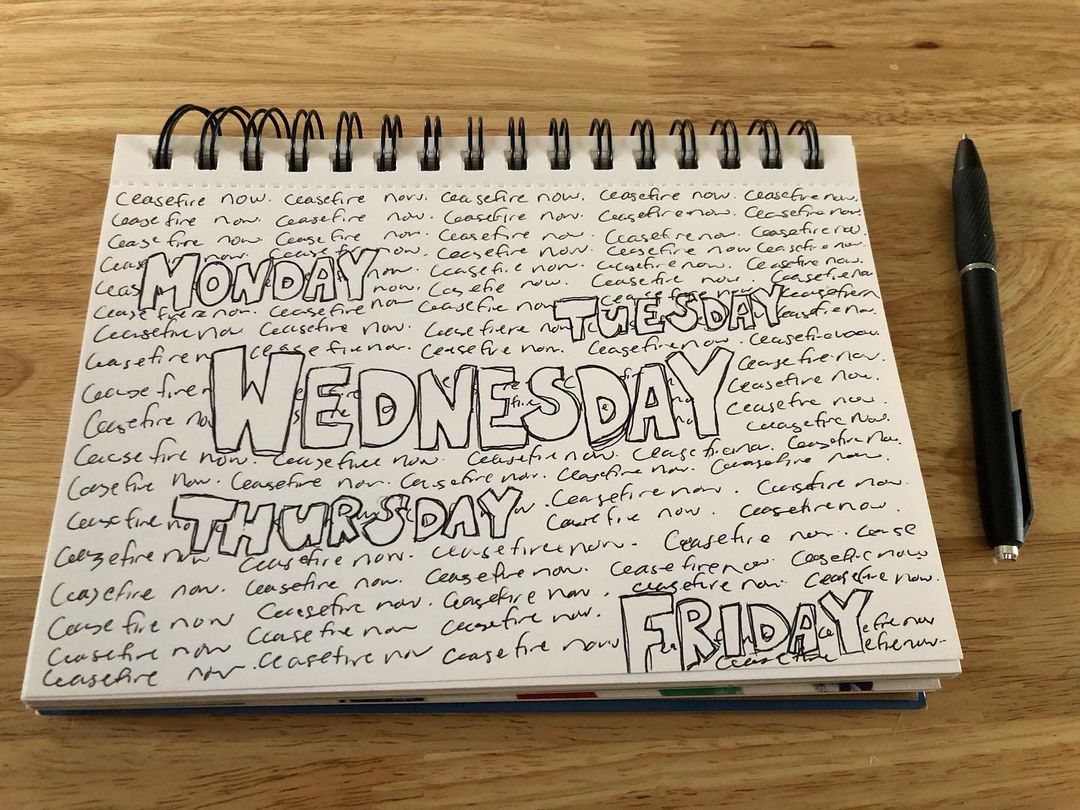 Ceasefire now. Ceasefire now. Ceasefire now. Ceasefire now. Ceasefire now.
Cease fire now. Ceasefire now. Ceasefire now. Ceasefire now. Ceasefire now.
Cease fire now. Ceasefire now. Ceasefire now. Ceasefire now. Ceasefire now.
now. Ceasefire now. Ceasefire now Ceasefire now.
MONDAY now. Ceasefire now. Ceasefire now. Ceasefire now.
now. Ceasefire now. Ceasefire now. Ceasefire now
Ceasefire now. Ceasefire now Ceasefire now
TUESDAY
Ceasefire now Ceasefire now. Ceasefire now
Ceasefire now. Ceasefire now. Ceasefire now.
Ceasefire now.
WEDNESDAY
Cease fire Ceasefire now.
Ceasefire now.
Ceasefire now. Ceasefire now.
Ceasefire now. Ceasefire now. Ceasefire now. Ceasefire now. Ceasefire now.
Ceasefire now. Ceasefire now. Ceasefire now. Ceasefire now. Ceasefire now.
THURSDAY
Ceasefire now. Ceasefire now.
Ceasefire now. Ceasefire now.
Ceasefire now Ceasefire now. Ceasefire now. Ceasefire now. Cease
Ceasefire now. Ceasefire now. Ceasefire now. Ceasefire now Ceasefire now
Cease fire now Ceasefire now. Ceasefire now. Ceasefire now. Ceasefire now.
Ceasefire now. Ceasefire now Ceasefire now.
FRIDAY
Ceasefire now. Ceasefire now Ceasefire now